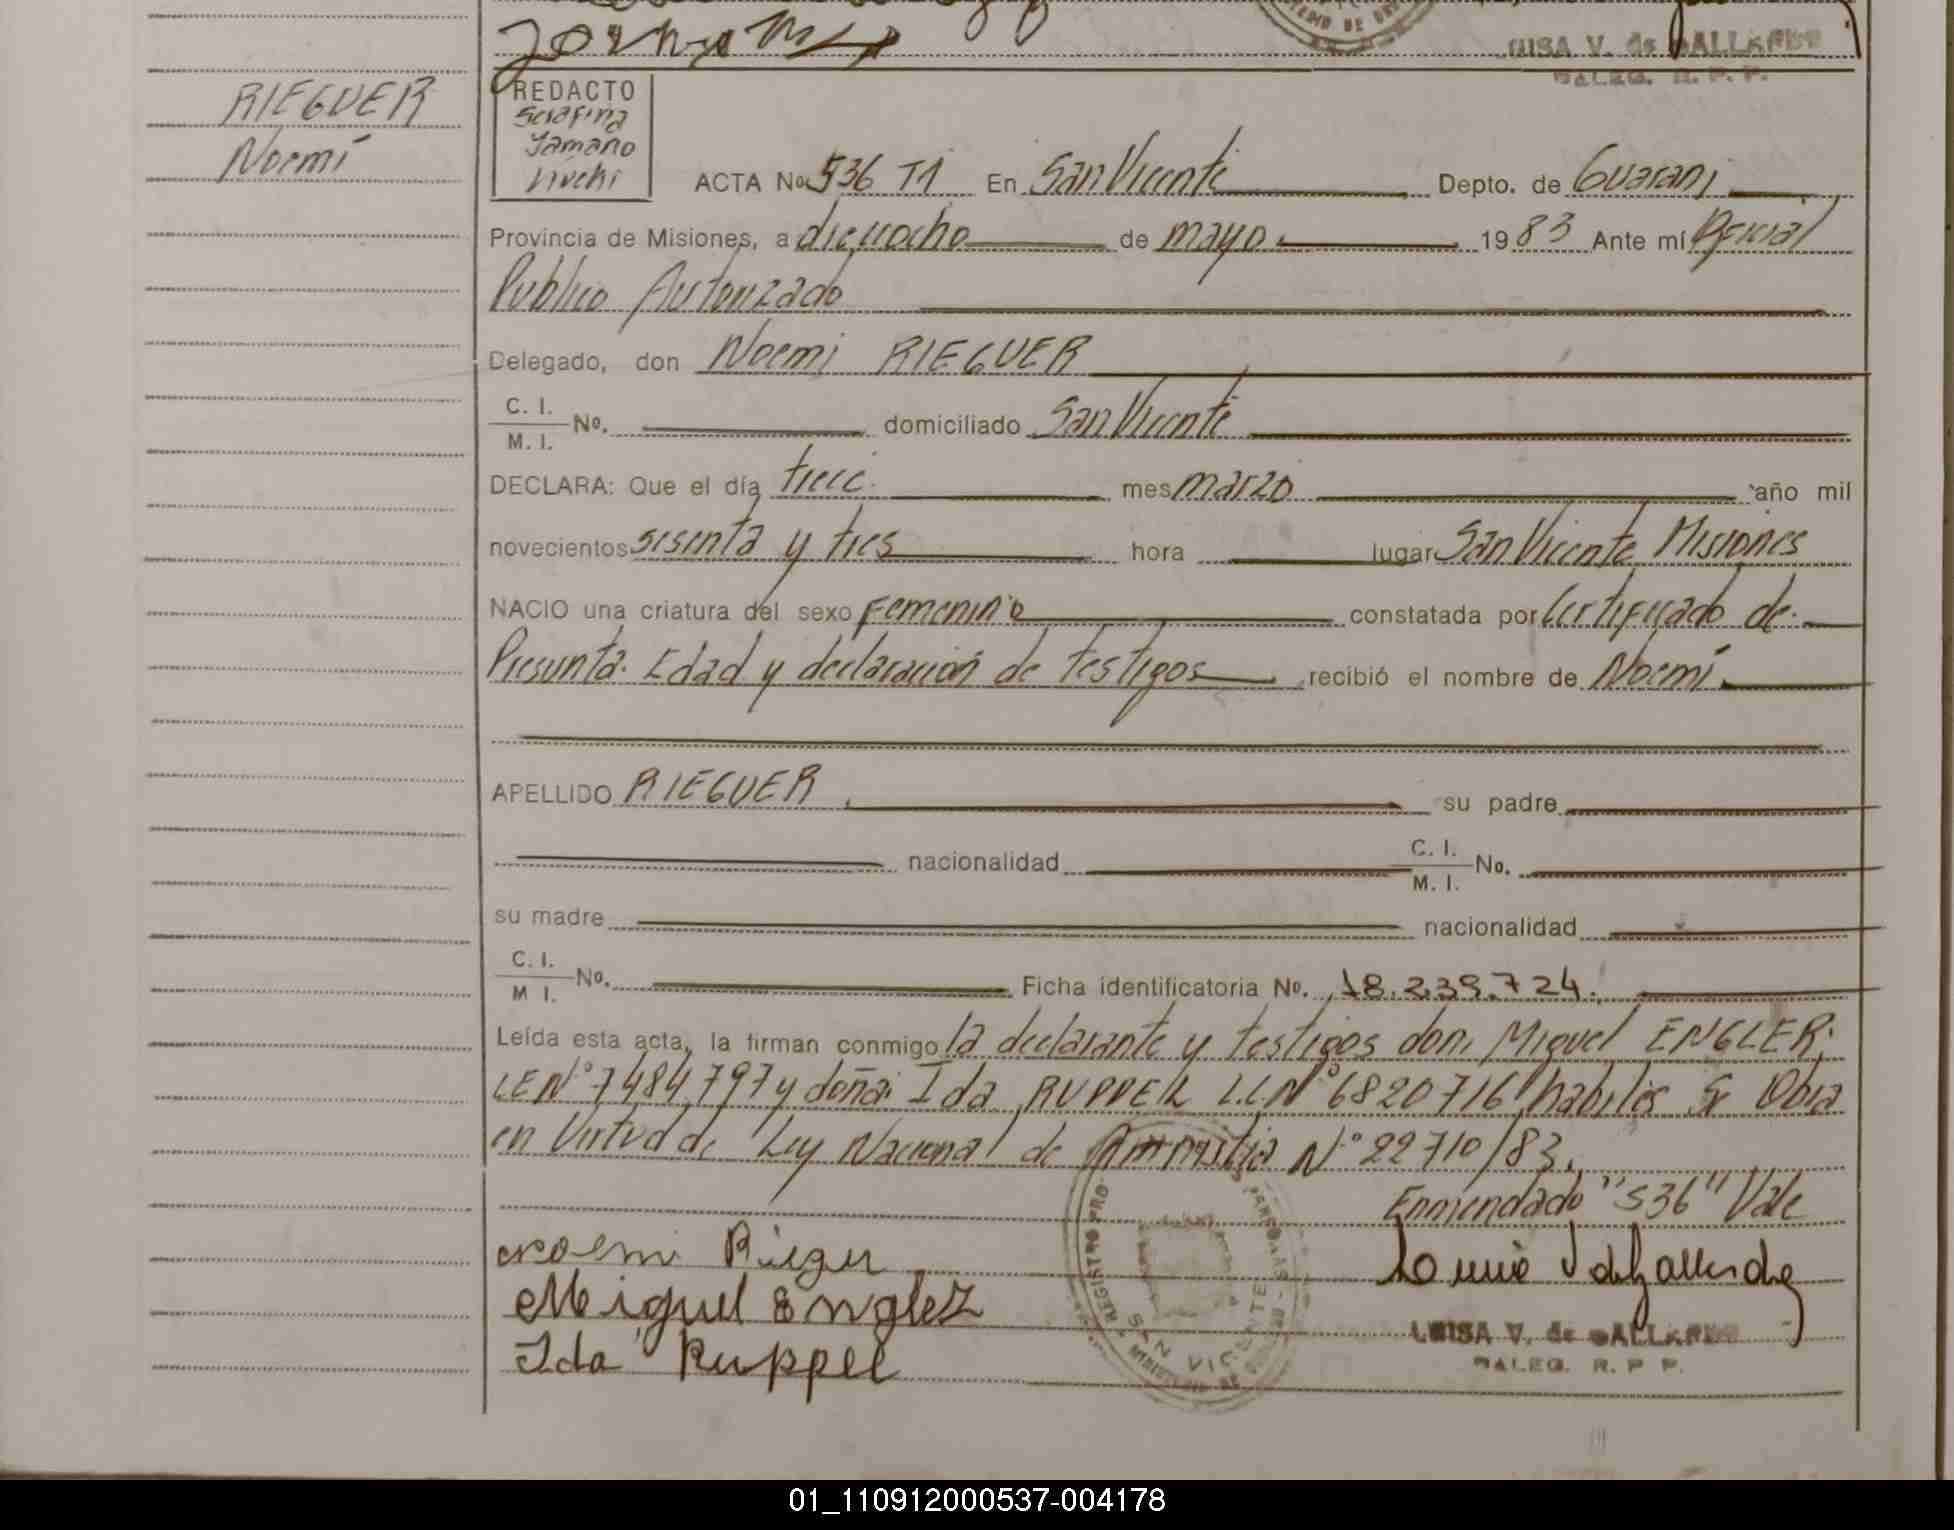 LUISA V. de GALLARDO
DALEG. R. P. P.
RIEGUER
Noemí
REDACTO
Serafina
Yamano
ACTA No. 536 T1 En San Vicente Depto. de Guarani
Provincia de Misiones, a dieciocho de mayo 1983 Ante mí Oficial
Publico Autorizado
Delegado, don Noemi RIEGUER
C. I.
M. I. No. domiciliado San Vicente
DECLARA: Que el día trece mes marzo año mil
novecientos sesenta y tres hora lugar San Vicente Misiones
NACIO una criatura del sexo Femenino constatada por Certificado de
Presunta Edad y declaración de testigos recibió el nombre de Noemí
APELLIDO RIEGUER su padre
nacionalidad C. I. M. I. No.
su madre nacionalidad
C. I. M I. No. Ficha identificatoria No. 18.239.724.
Leída esta acta, la firman conmigo la declarante y testigos don, Miguel ENGLER.
LE Nº 7484.797 y doña Ida RUPPEL L.C. Nº 6820716 habiles Se Obra
en Virtud de Ley Nacional de Amnistia Nº 22710/83.
Enmendado "536" Vale
Noemi Rieguer
Miguel Engler
Ida Ruppel
LUISA V. de GALLARDO
DALEG. R. P P.
01_110912000537-004178